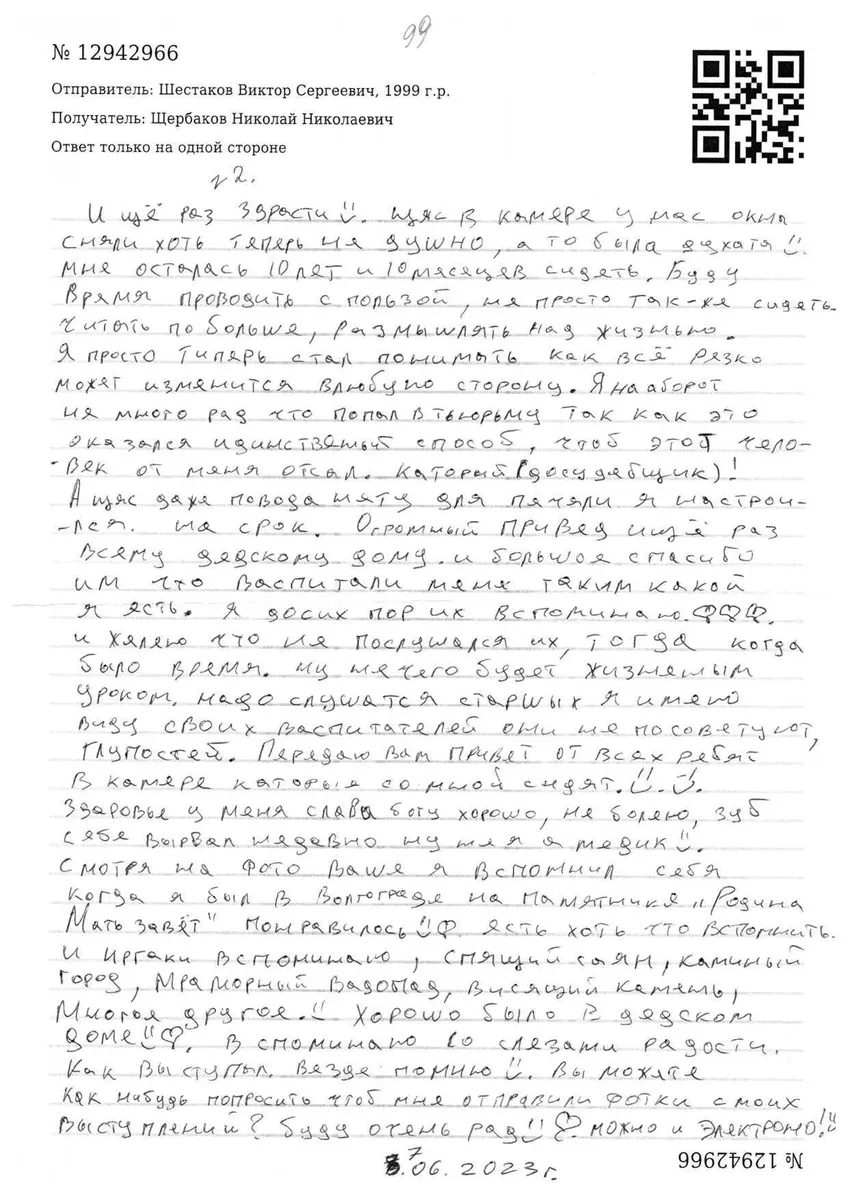 99
№ 12942966
Отправитель: Шестаков Виктор Сергеевич, 1999 г.р.
Получатель: Щербаков Николай Николаевич
Ответ только на одной стороне
√2.
И щё раз здрасти. щяс в камере у нас окна
сняли хоть теперь не душно, а то была духатя
мне осталась 10 лет и 10 месяцев сидеть. Буду
время проводить с пользой, не просто так-же сидеть.
читать по больше, размышлять над жизнью.
Я просто типерь стал понимать как всё рязко
можят изменится влюбую сторону. Я нааборот
не много рад что попал в тьюрьму так как это
оказался идинствяный способ, чтоб этот чело-
-век от меня отсал. каторый (досудебщик)!
А щяс даже повода няту для пячяли я настрои-
-лся. на срок. Огромный привед ищё раз
всяму дядскому дому. и большоя спасибо
им что васпитали меня таким какой
я есть. я досих пор их вспоминаю.
и жялею что не послушался их, тогда когда
было время. ну ничего будет жизненым
уроком. надо слушатся старшых я имею
виду своих васпитателей они не посоветуют,
глупостей. Передаю вам привет от всех ребят
в камере каторыя со мной сидят.
здоровье у меня слава богу хорошо, не болею, зуб
себе вырвал недавно ну жя я медик.
смотря на фото ваше я вспомнил себя
когда я был в Волгограде на памятнике „Родина
Мать завёт" понравилось есть хоть что вспомнить.
и Иргаки вспоминаю, спящий саян, каминый
город, Мраморный вадопад, висящий камень,
Многоя другое. Хорошо было в дядском
доме. вспоминаю со слезами радости.
как выступыл. везде помню. вы можяте
как нибудь попросить чтоб мне отправили фотки с моих
выступлений? буду очень рад можно и электроно!
7.06.2023г.
№ 12942966